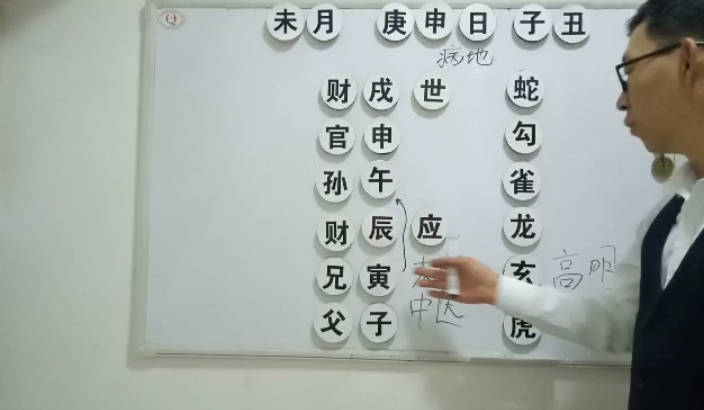 未月 庚申日 子丑
病地
财 戌 世 蛇
官 申 勾
孙 午 雀
财 辰 应 龙
兄 寅 玄 高明
父 子 中医 虎